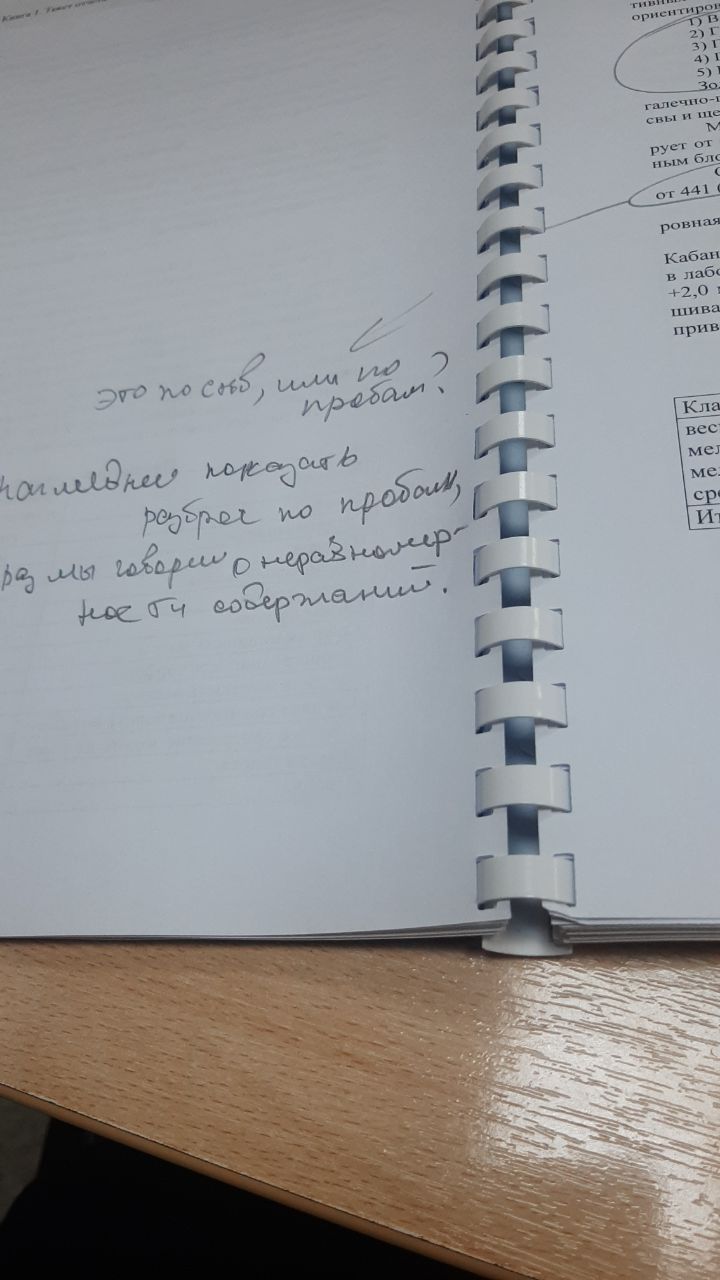 Книга 1. Текст отчета
это по скв, или по
пробам?
нагляднее показать
разброс по пробам,
раз мы говорим о неравномер-
ности содержаний.
тивны
ориентиров
1) В
2) Г
3) П
4) Г
5)
Зол
галечно-
свы и ще
М
рует от
ным бло
С
от 441
ровная
Кабан
в лабо
+2,0
шива
прив
Кла
вес
мел
мел
сре
Ит